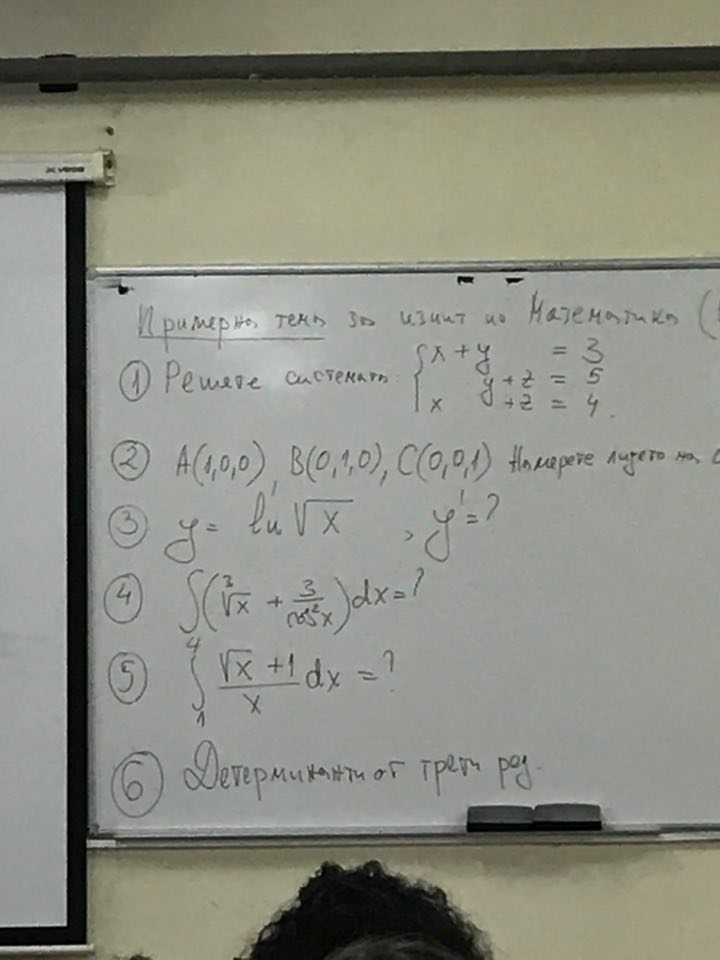 Примерна тема за изпит по Математика (
① Решете системата: { x + y = 3
y + z = 5
x + z = 4.
② A(1,0,0), B(0,1,0), C(0,0,1) Намерете лицето на
③ y = ln √x , y' = ?
④ ∫(∛x + 3/cos²x)dx = ?
⑤ ∫₁⁴ (√x + 1)/x dx = ?
⑥ Детерминанти от трети ред.